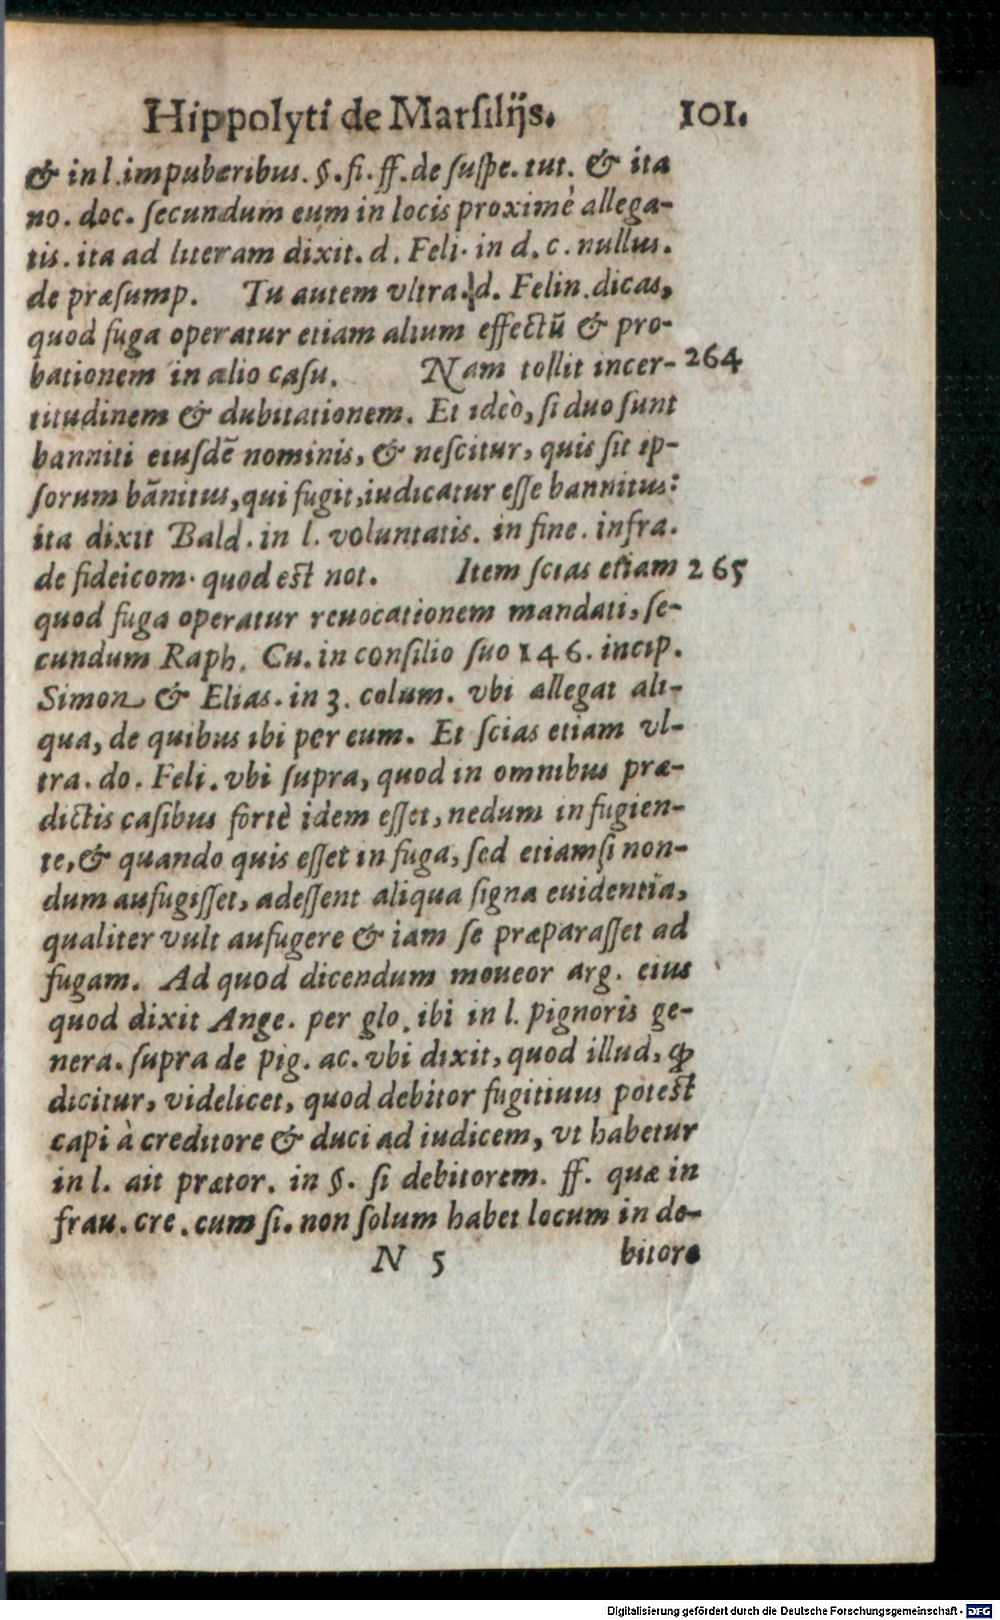 Hippolyti de Marſilijs. 101.
& in l. impuberibus. §. fi. ff. de ſuſpe. tut. & ita
no. doc. ſecundum eum in locis proximè allega-
tis. ita ad literam dixit. d. Feli. in d. c. nullus.
de præſump. Tu autem vltra. d. Felin. dicas,
quod fuga operatur etiam alium effectũ & pro-
bationem in alio caſu. Nam tollit incer- 264
titudinem & dubitationem. Et ideò, ſi duo ſunt
banniti eiuſdē nominis, & neſcitur, quis ſit ip-
ſorum bānitus, qui fugit, iudicatur eſſe bannitus:
ita dixit Bald. in l. voluntatis. in fine. infra.
de fideicom. quod est not. Item ſcias etiam 265
quod fuga operatur reuocationem mandati, ſe-
cundum Raph. Cu. in conſilio ſuo 146. incip.
Simon & Elias. in 3. colum. vbi allegat ali-
qua, de quibus ibi per eum. Et ſcias etiam vl-
tra. do. Feli. vbi ſupra, quod in omnibus præ-
dictis caſibus fortè idem eſſet, nedum in fugien-
te, & quando quis eſſet in fuga, ſed etiamſi non-
dum aufugiſſet, adeſſent aliqua ſigna euidentia,
qualiter vult aufugere & iam ſe præparaſſet ad
fugam. Ad quod dicendum moueor arg. eius
quod dixit Ange. per glo. ibi in l. pignoris ge-
nera. ſupra de pig. ac. vbi dixit, quod illud, ꝙ
dicitur, videlicet, quod debitor fugitiuus potest
capi à creditore & duci ad iudicem, vt habetur
in l. ait prætor. in §. ſi debitorem. ff. quæ in
frau. cre. cum ſi. non ſolum habet locum in de-
N 5 bitore
Digitalisierung gefördert durch die Deutsche Forschungsgemeinschaft - DFG